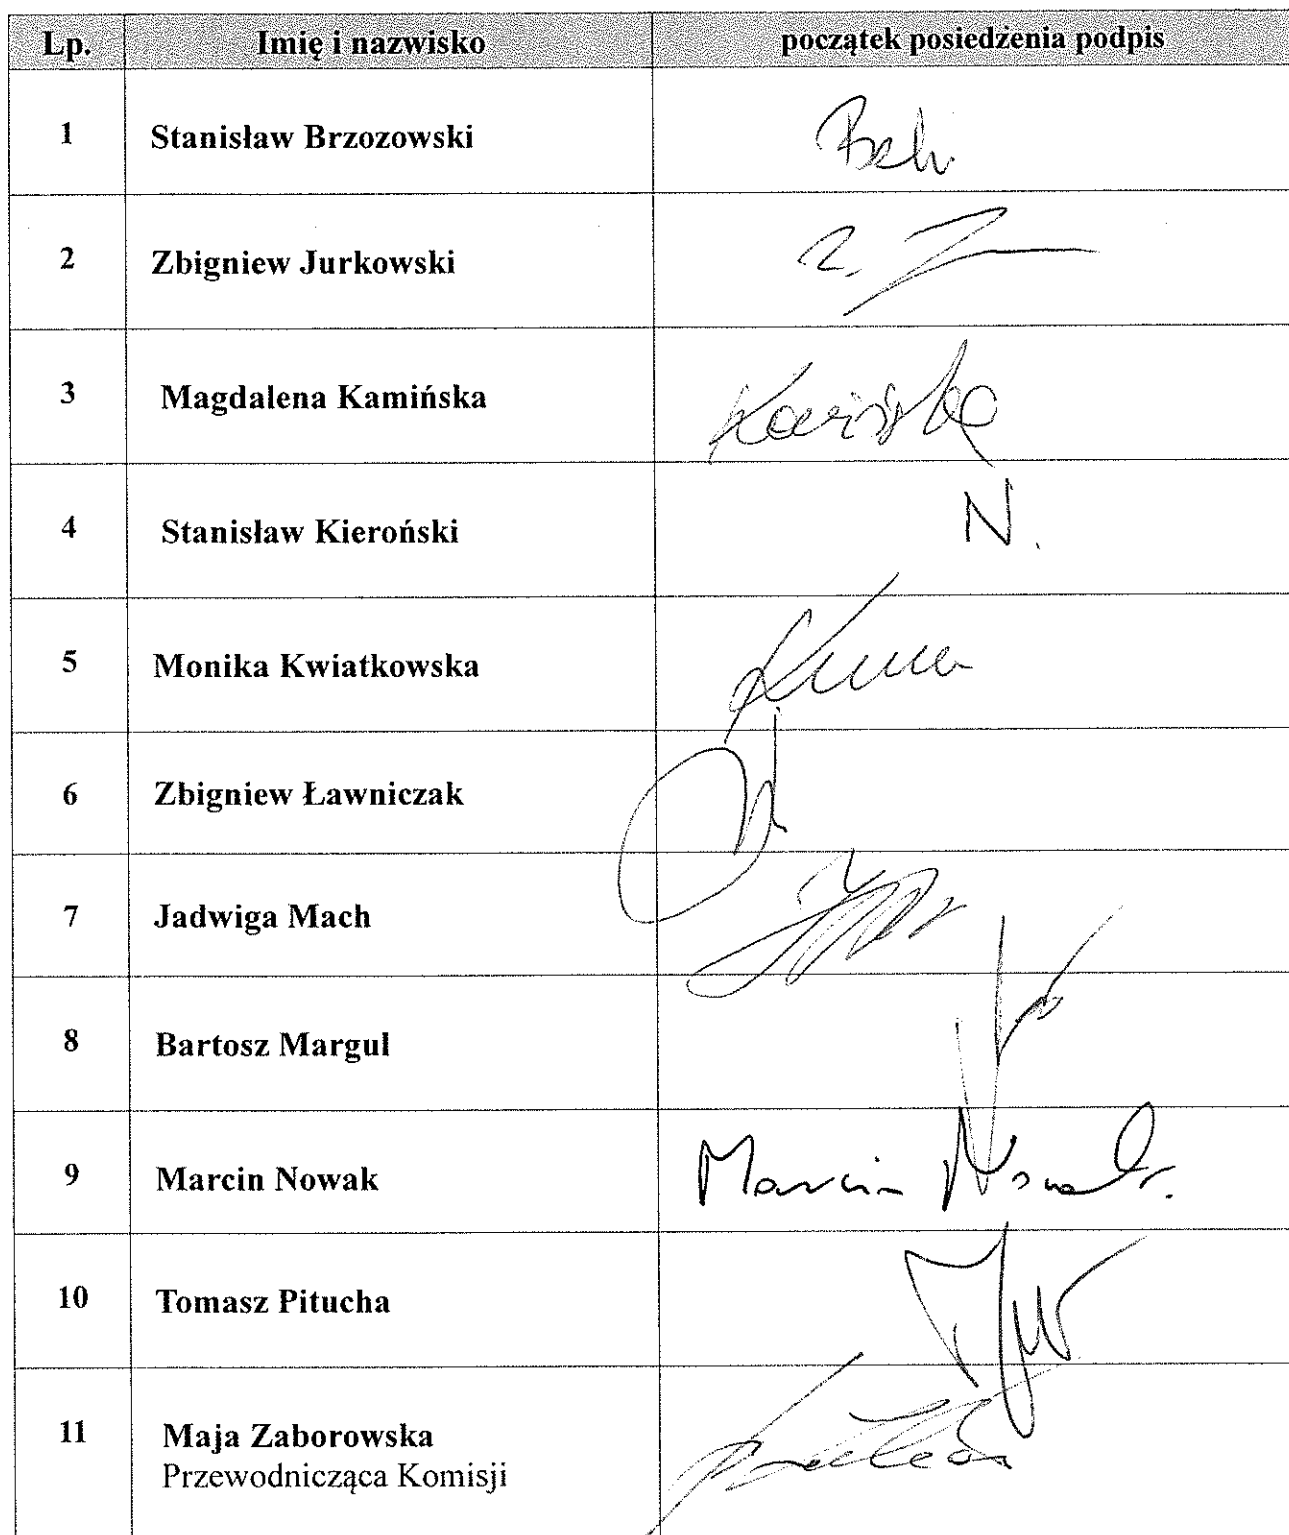 Lp. Imię i nazwisko początek posiedzenia podpis
1 Stanisław Brzozowski
2 Zbigniew Jurkowski
3 Magdalena Kamińska Kamińska
4 Stanisław Kieroński N.
5 Monika Kwiatkowska
6 Zbigniew Ławniczak
7 Jadwiga Mach
8 Bartosz Margul
9 Marcin Nowak Marcin Nowak
10 Tomasz Pitucha
11 Maja Zaborowska
Przewodnicząca Komisji